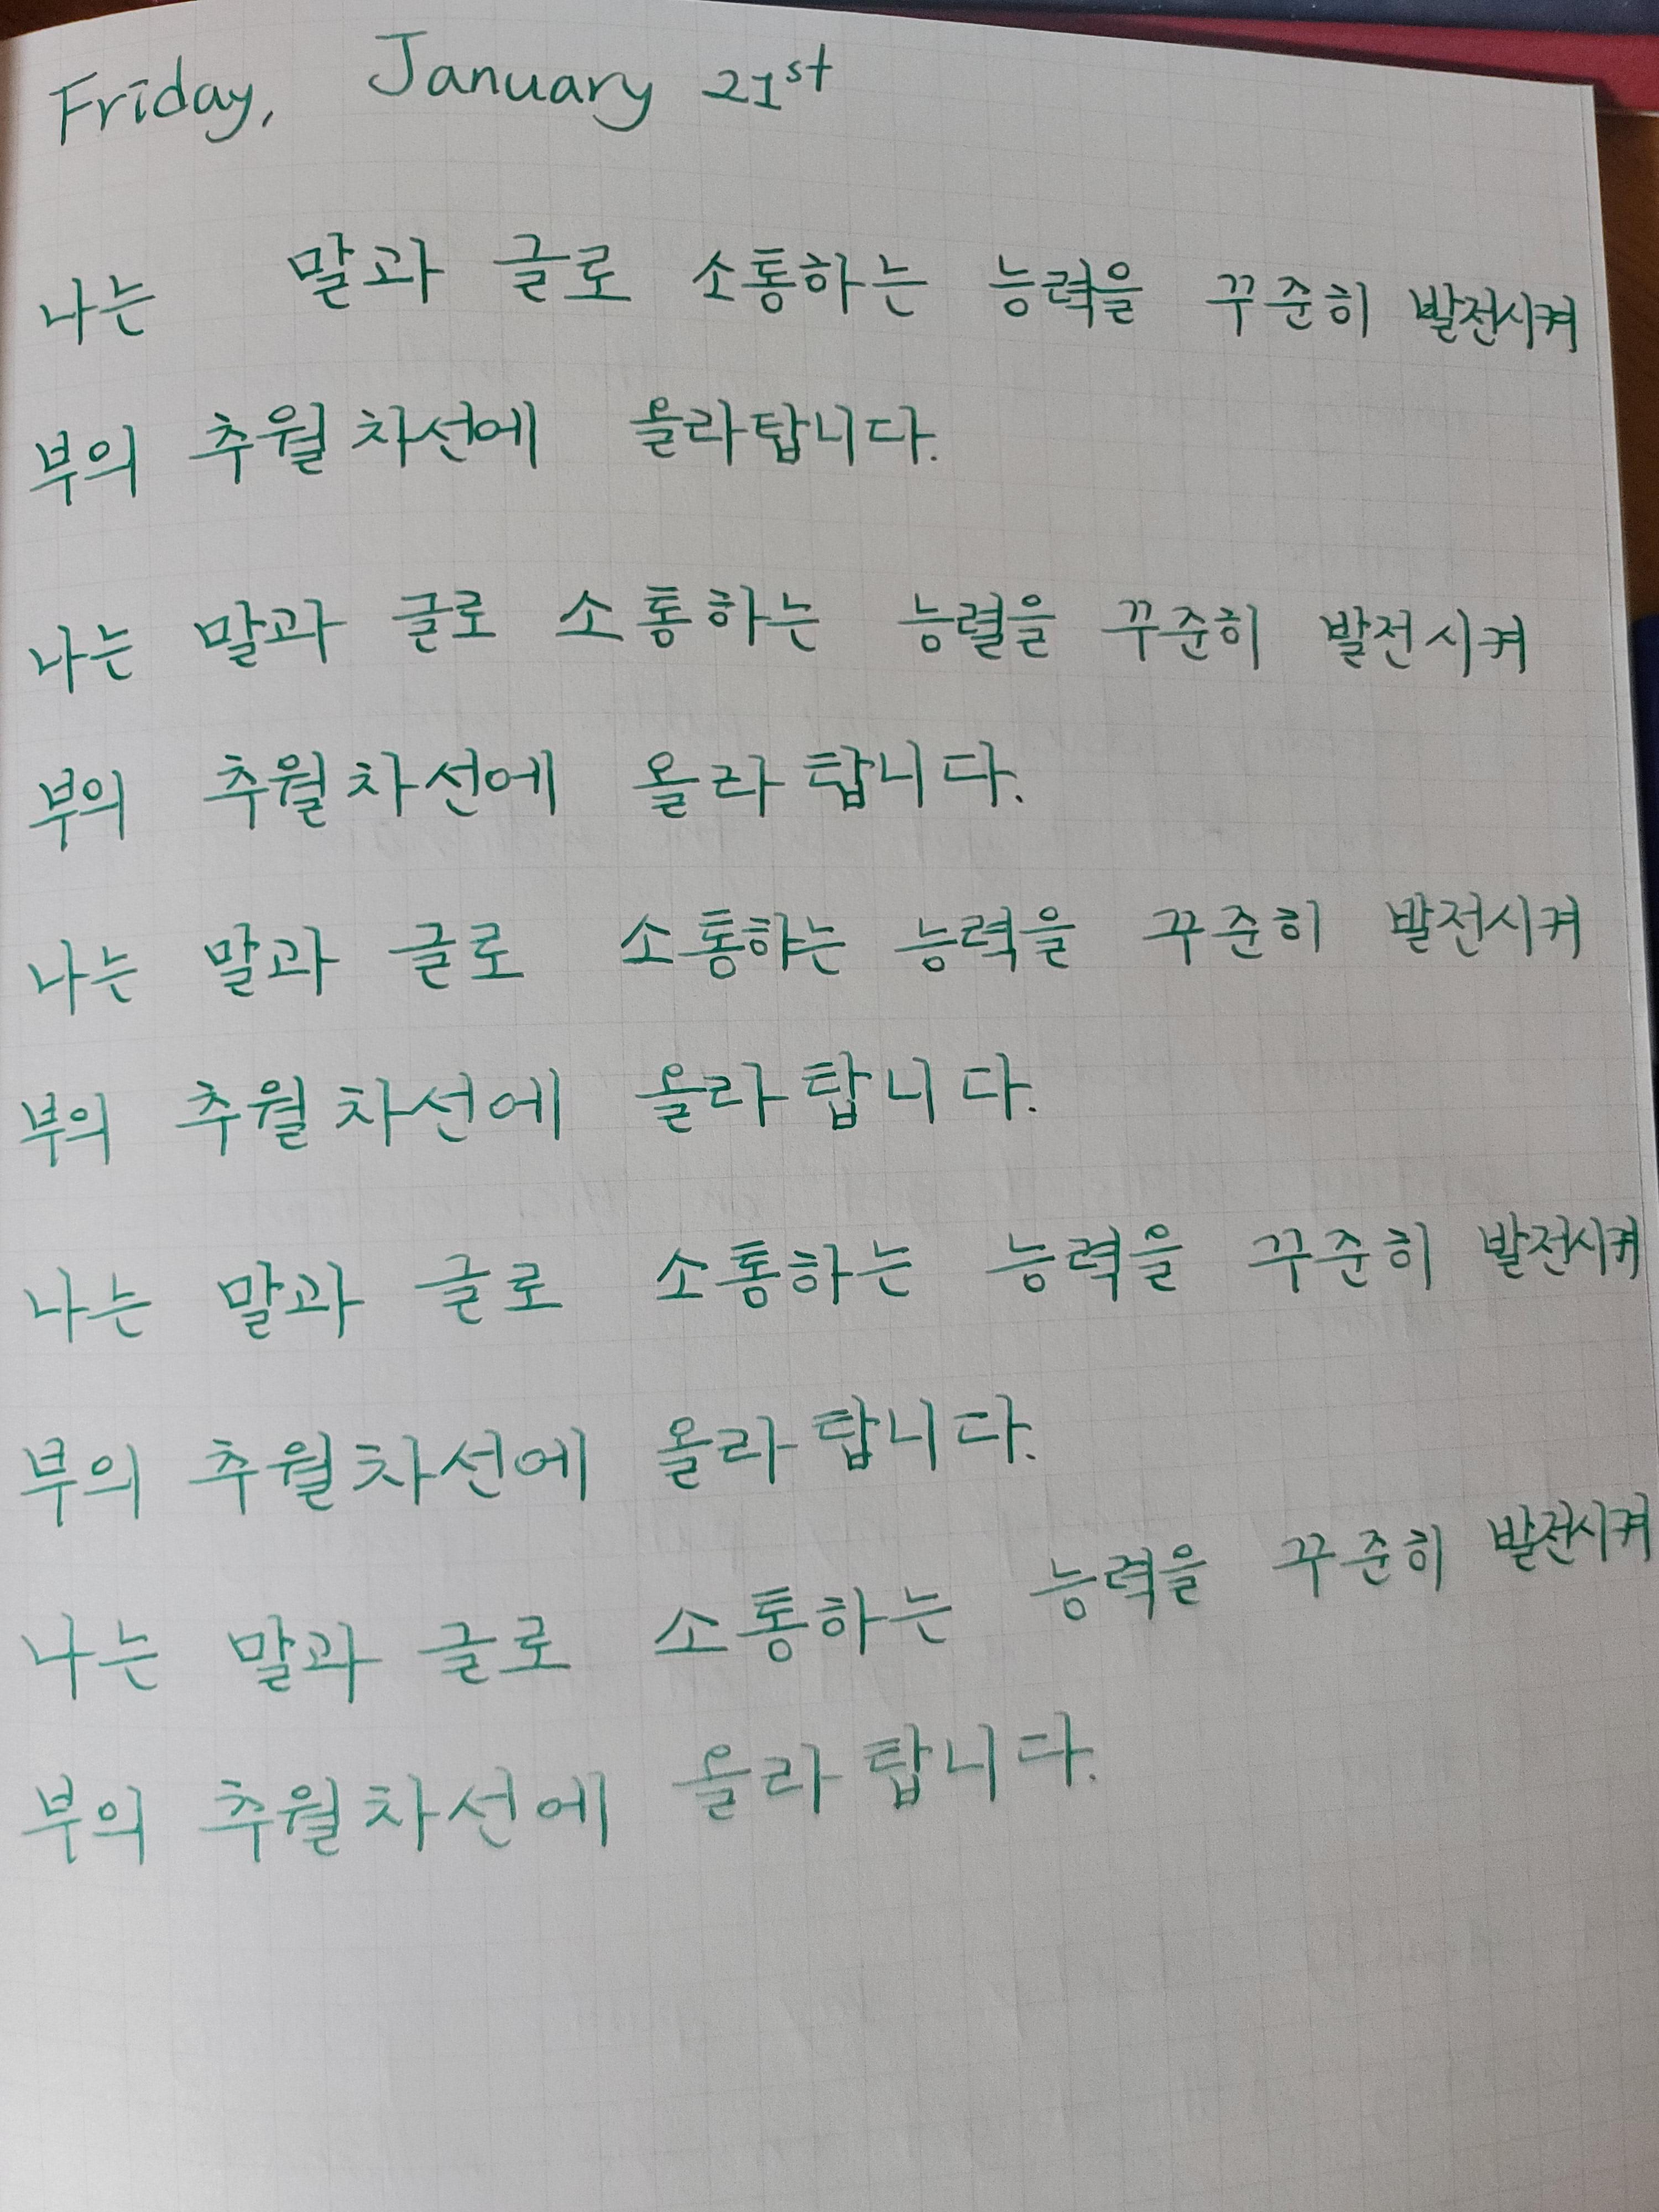 Friday, January 21st
나는 말과 글로 소통하는 능력을 꾸준히 발전시켜
부의 추월차선에 올라탑니다.
나는 말과 글로 소통하는 능력을 꾸준히 발전시켜
부의 추월차선에 올라탑니다.
나는 말과 글로 소통하는 능력을 꾸준히 발전시켜
부의 추월차선에 올라탑니다.
나는 말과 글로 소통하는 능력을 꾸준히 발전시켜
부의 추월차선에 올라탑니다.
나는 말과 글로 소통하는 능력을 꾸준히 발전시켜
부의 추월차선에 올라탑니다.